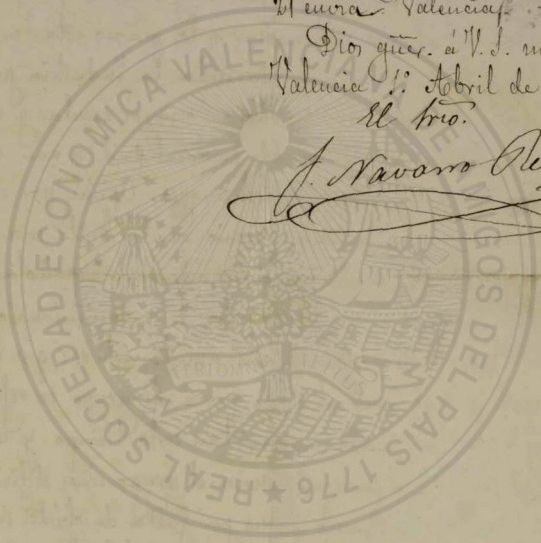 Valencia
Dios güe. á V. S. m
Valencia 1º Abril de
El Srio.
J. Navarro Re
REAL SOCIEDAD ECONOMICA VALENCIANA DE AMIGOS DEL PAIS 1776